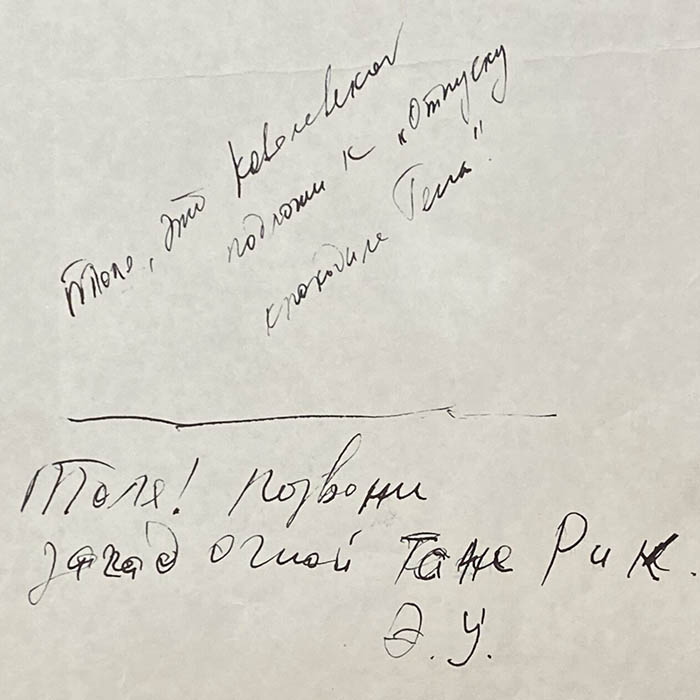 Толя, это Ковалевская
подложи к „Отпуску
крокодила Гены".
Толя! Позвони
загадочной Тане Рик.
Э.У.